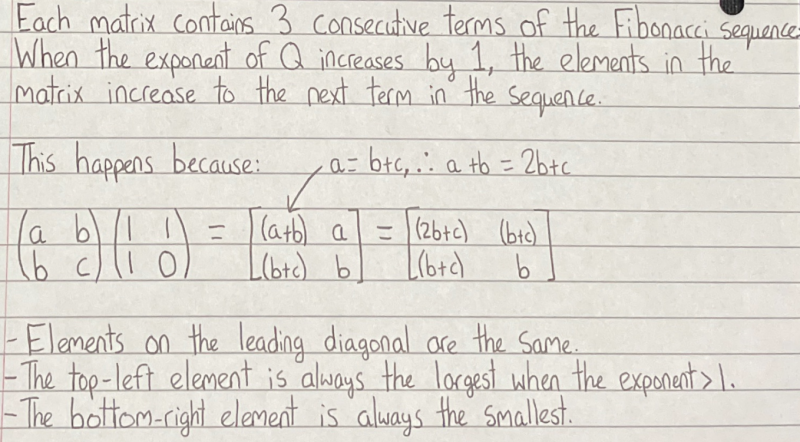 Each matrix contains 3 consecutive terms of the Fibonacci sequence.
When the exponent of Q increases by 1, the elements in the
matrix increase to the next term in the sequence.
This happens because: a = b+c, ∴ a+b = 2b+c
(a b) (1 1) = [(a+b) a] = [(2b+c) (b+c)]
(b c) (1 0) [(b+c) b] [(b+c) b]
- Elements on the leading diagonal are the same.
- The top-left element is always the largest when the exponent > 1.
- The bottom-right element is always the smallest.